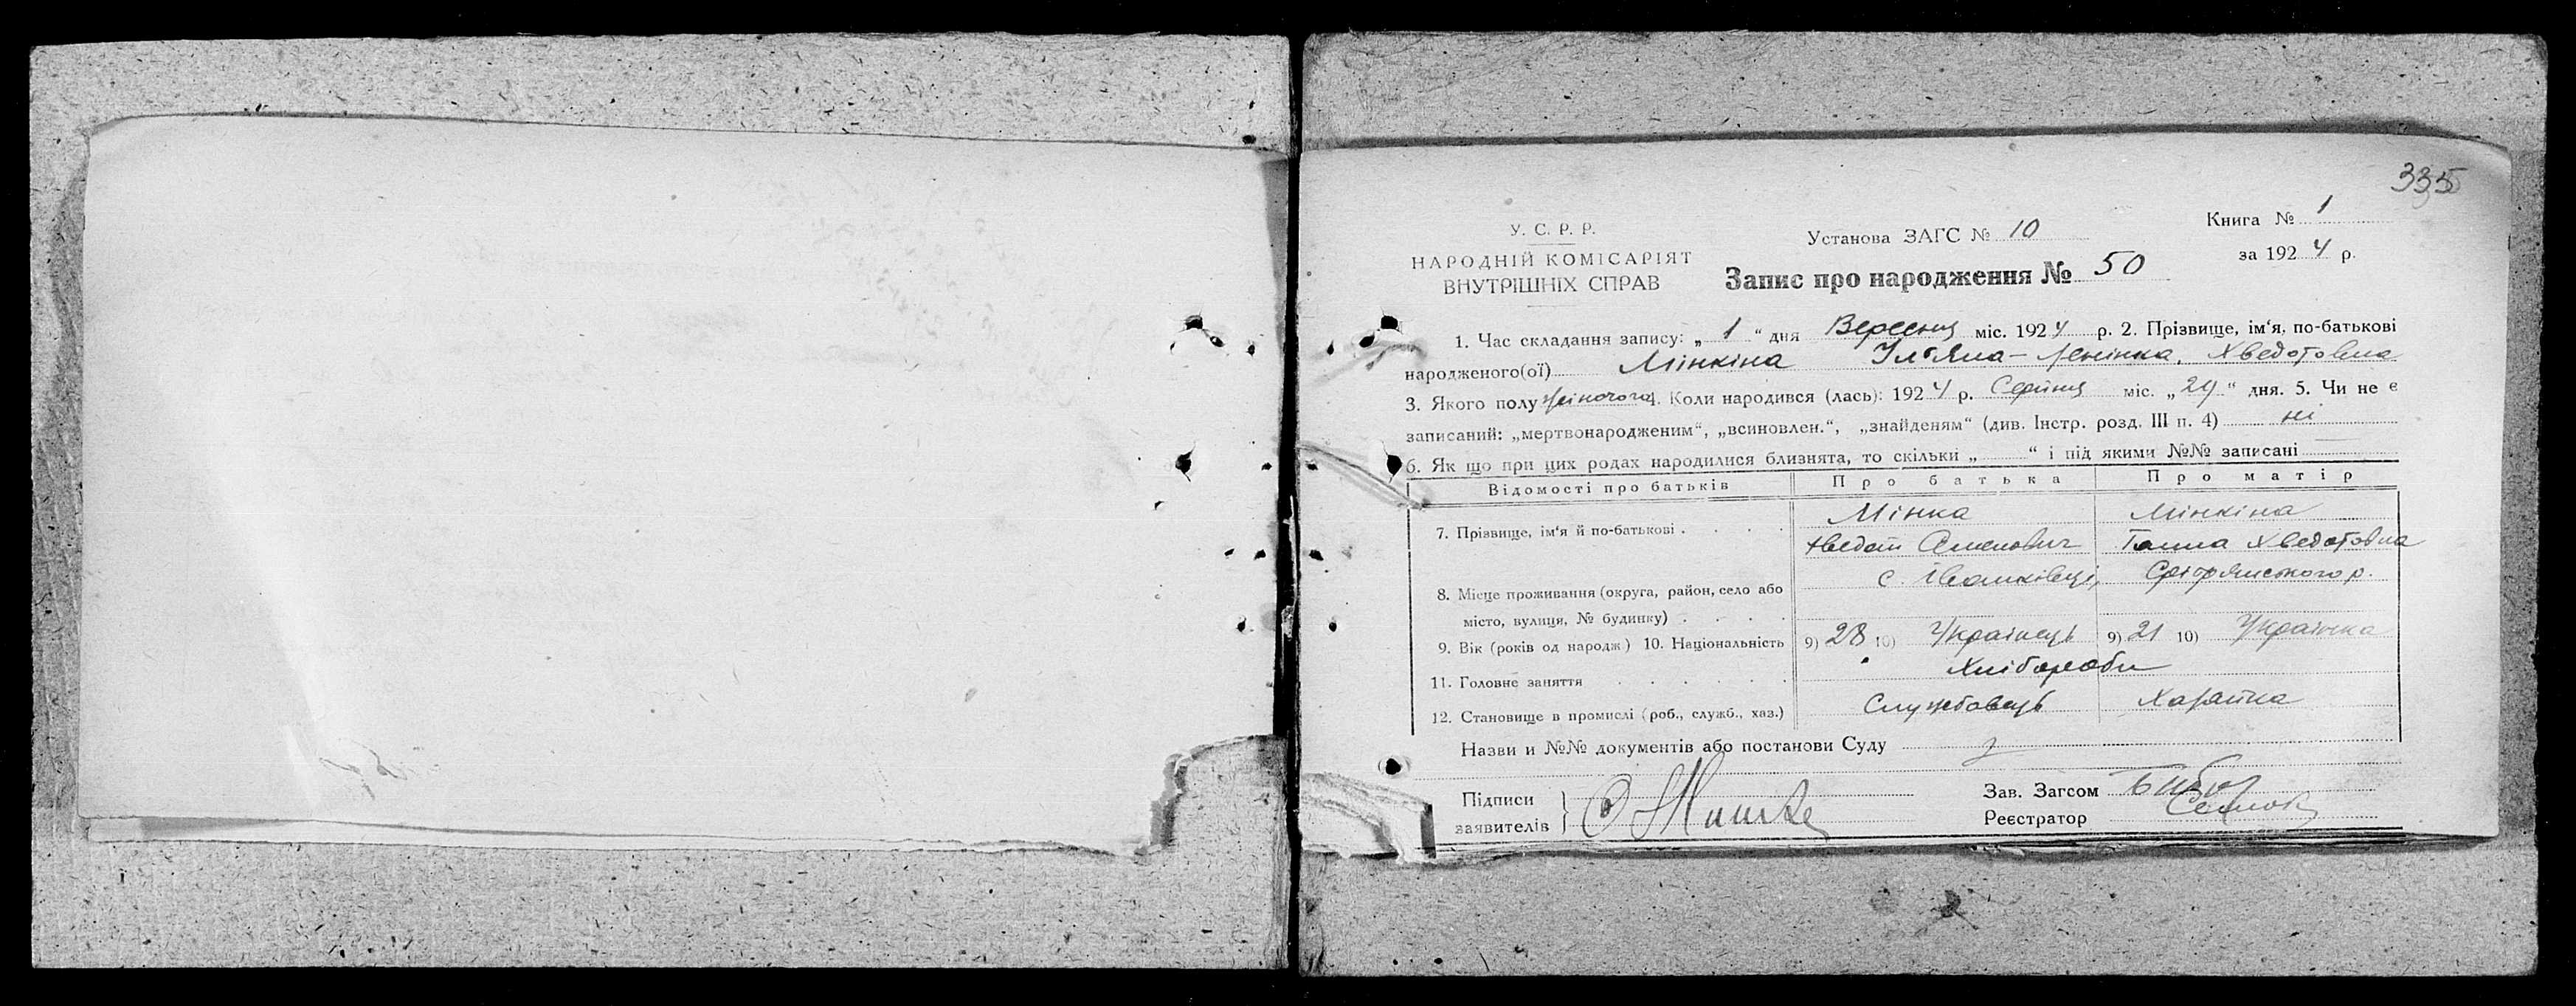 335
У. С. Р. Р.
НАРОДНІЙ КОМІСАРІЯТ
ВНУТРІШНІХ СПРАВ
Установа ЗАГС № 10
Запис про народження № 50
Книга № 1
за 1924 р.
1. Час складання запису: „ 1 “ дня Вересня міс. 1924 р. 2. Прізвище, ім‘я, по-батькові
народженого(ої) Мінкіна Ул‘яна-Ленінка, Хведотовна
3. Якого полу жіночого 4. Коли народився (лась): 1924 р. Серпня міс. „ 29 “ дня. 5. Чи не є
записаний: „мертвонародженим“, „всиновлен.“, „знайденям“ (див. Інстр. розд. III п. 4) ні
6. Як що при цих родах народилися близнята, то скільки „ “ і під якими №№ записані
Відомості про батьків Про батька Про матір
7. Прізвище, ім‘я й по-батькові Мінка Мінкіна
Хведот Ганна Хведотовна
8. Місце проживання (округа, район, село або с. Іванківці,
місто, вулиця, № будинку)
9. Вік (років од народж) 10. Національність 9) 28 10) Українець 9) 21 10) Українка
11. Головне заняття Хлібороби
12. Становище в промислі (роб., служб., хаз.) Службовець Хазяйка
Назви и №№ документів або постанови Суду
Підписи
заявителів
Зав. Загсом
Реєстратор